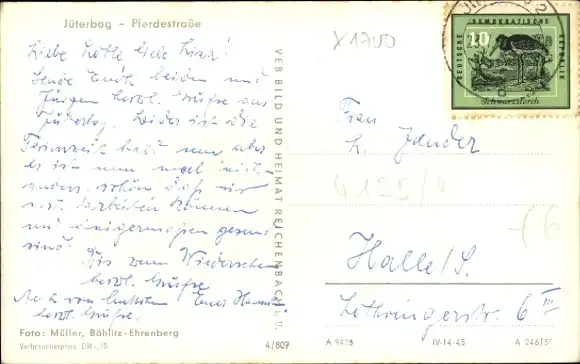 Jüterbog – Pferdestraße
Liebe Lotte, liebe Lisa!
Sende Euch beiden mit
Jürgen herzl. Grüße aus
Jüterbog. Leider ist die
Ferienzeit bald um aber
es ist nun mal nicht
anders, schön daß wir
arbeiten können
und einigermaßen gesund
sind.
Bis zum Wiedersehen
herzl. Grüße
Eure
herzl. Grüße
Foto: Müller, Böhlitz-Ehrenberg
Verbraucherpreis DM -,15
4/807
VEB BILD UND HEIMAT REICHENBACH I. V.
X1700
DEUTSCHE DEMOKRATISCHE REPUBLIK
10
Schwarzstorch
Frau
L. Zander
4125/4
Halle/S.
Lothringerstr. 6 III
A 9428 IV-14-45 A 246/59